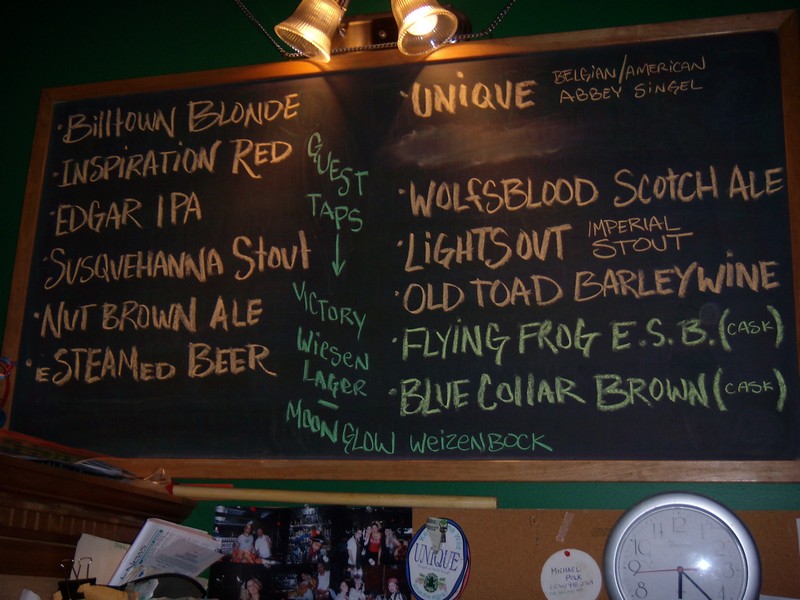 · Billtown Blonde
· Inspiration Red
· Edgar IPA
· Susquehanna Stout
· Nut Brown Ale
· eSTEAMed Beer
GUEST
TAPS
↓
VICTORY
WIESEN
LAGER
–
MOONGLOW WeizenBOCK
· UNiQUE BELGIAN/AMERICAN
ABBEY SINGEL
· WOLFSBLOOD SCOTCH ALE
· LiGHTS OUT IMPERIAL
STOUT
· OLD TOAD BARLEYWINE
· FLYING FROG E.S.B. (CASK)
· BLUE COLLAR BROWN (CASK)
UNIQUE
MICHAEL
POLK
12
1
2
3
4
8
9
10
11